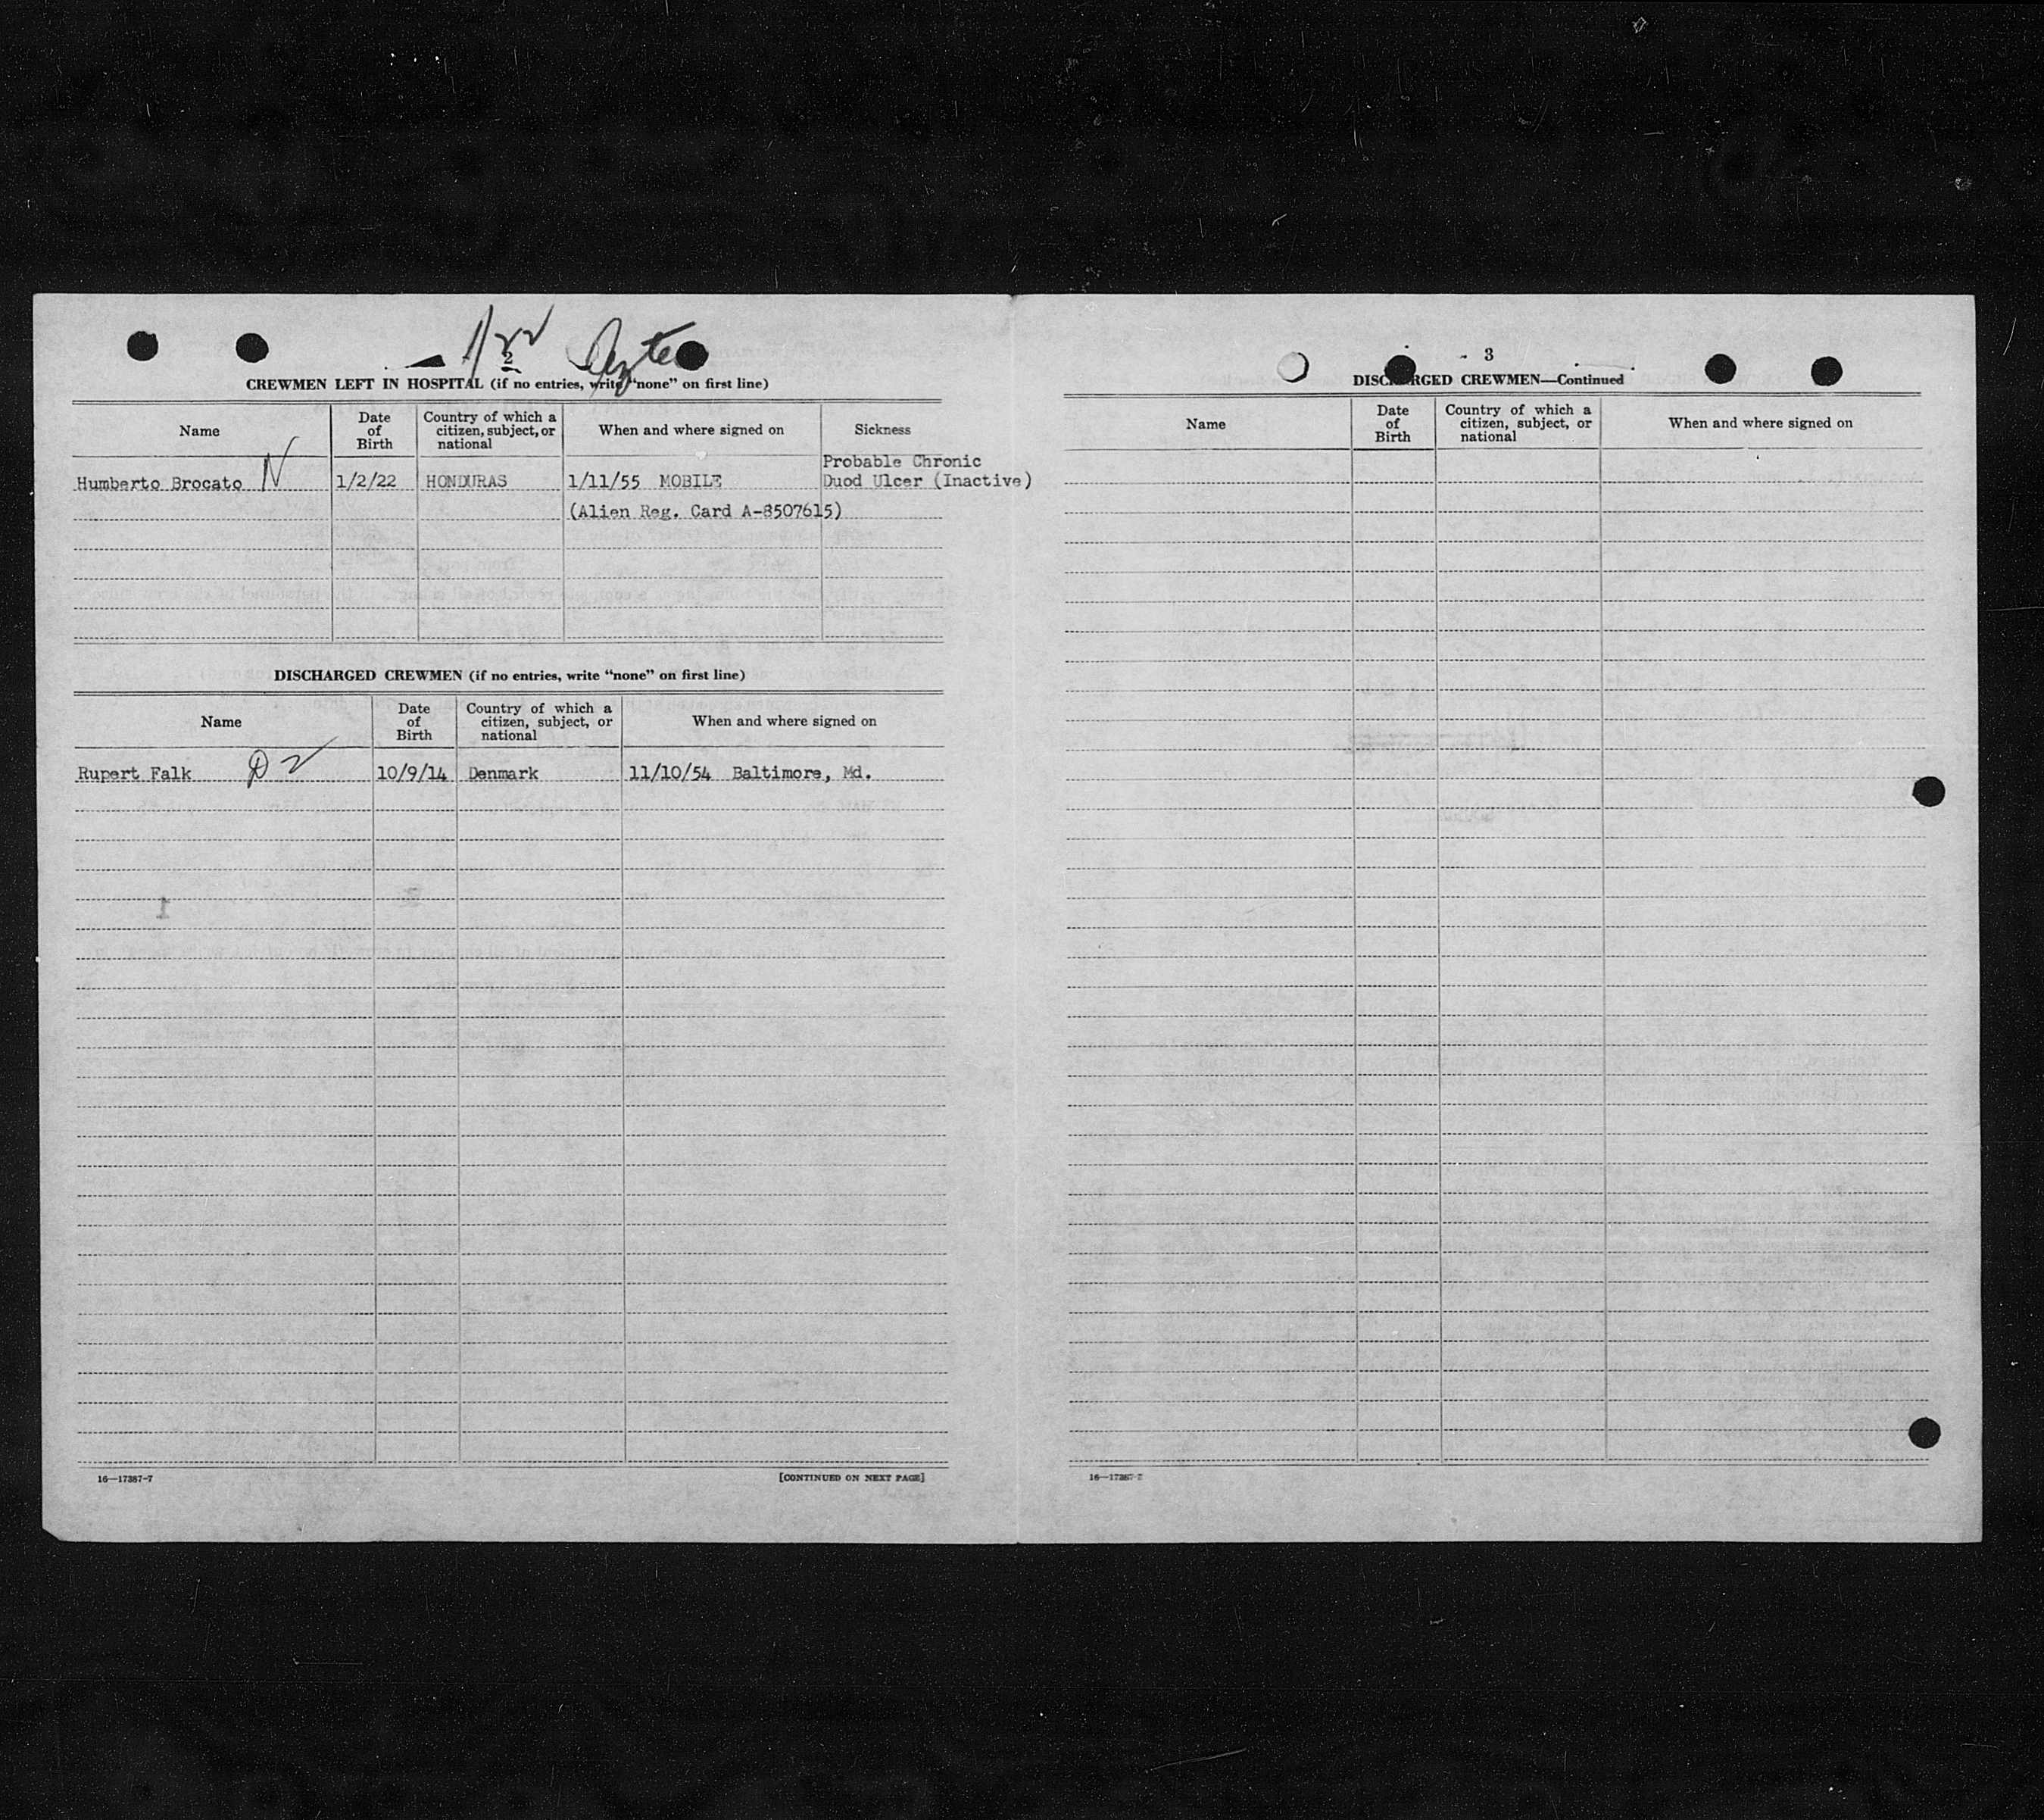 2
CREWMEN LEFT IN HOSPITAL (if no entries, write "none" on first line)
Name
Date of Birth
Country of which a citizen, subject, or national
When and where signed on
Sickness
Humberto Brocato N 1/2/22 HONDURAS 1/11/55 MOBILE Probable Chronic
Duod Ulcer (Inactive)
(Alien Reg. Card A-8507615)
DISCHARGED CREWMEN (if no entries, write "none" on first line)
Name
Date of Birth
Country of which a citizen, subject, or national
When and where signed on
Rupert Falk 10/9/14 Denmark 11/10/54 Baltimore, Md.
16—17387-7
[CONTINUED ON NEXT PAGE]
3
DISCHARGED CREWMEN—Continued
Name
Date of Birth
Country of which a citizen, subject, or national
When and where signed on